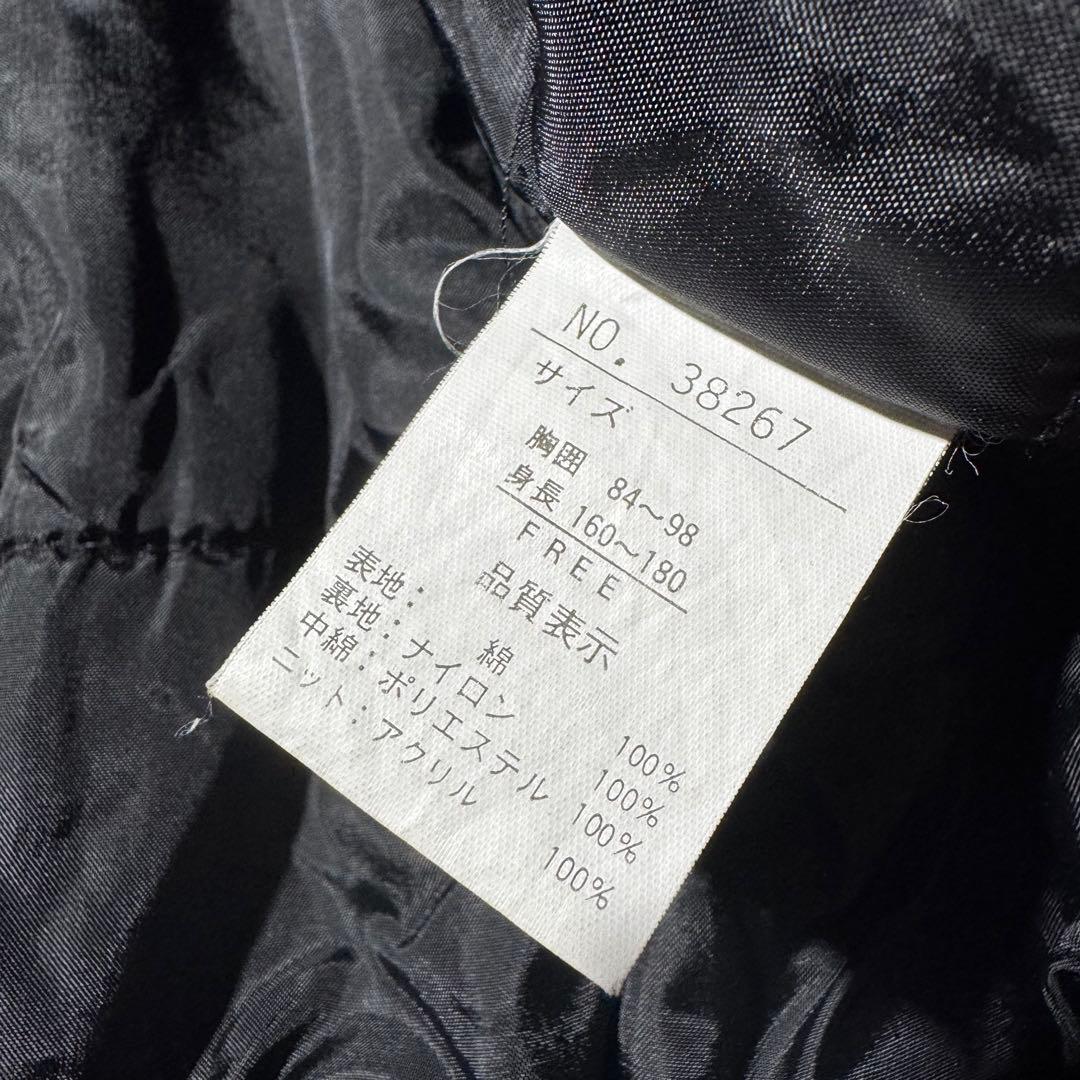 NO. 38267
サイズ
胸囲 84〜98
身長 160〜180
FREE
品質表示
表地: 綿 100%
裏地: ナイロン 100%
中綿: ポリエステル 100%
ニット: アクリル 100%